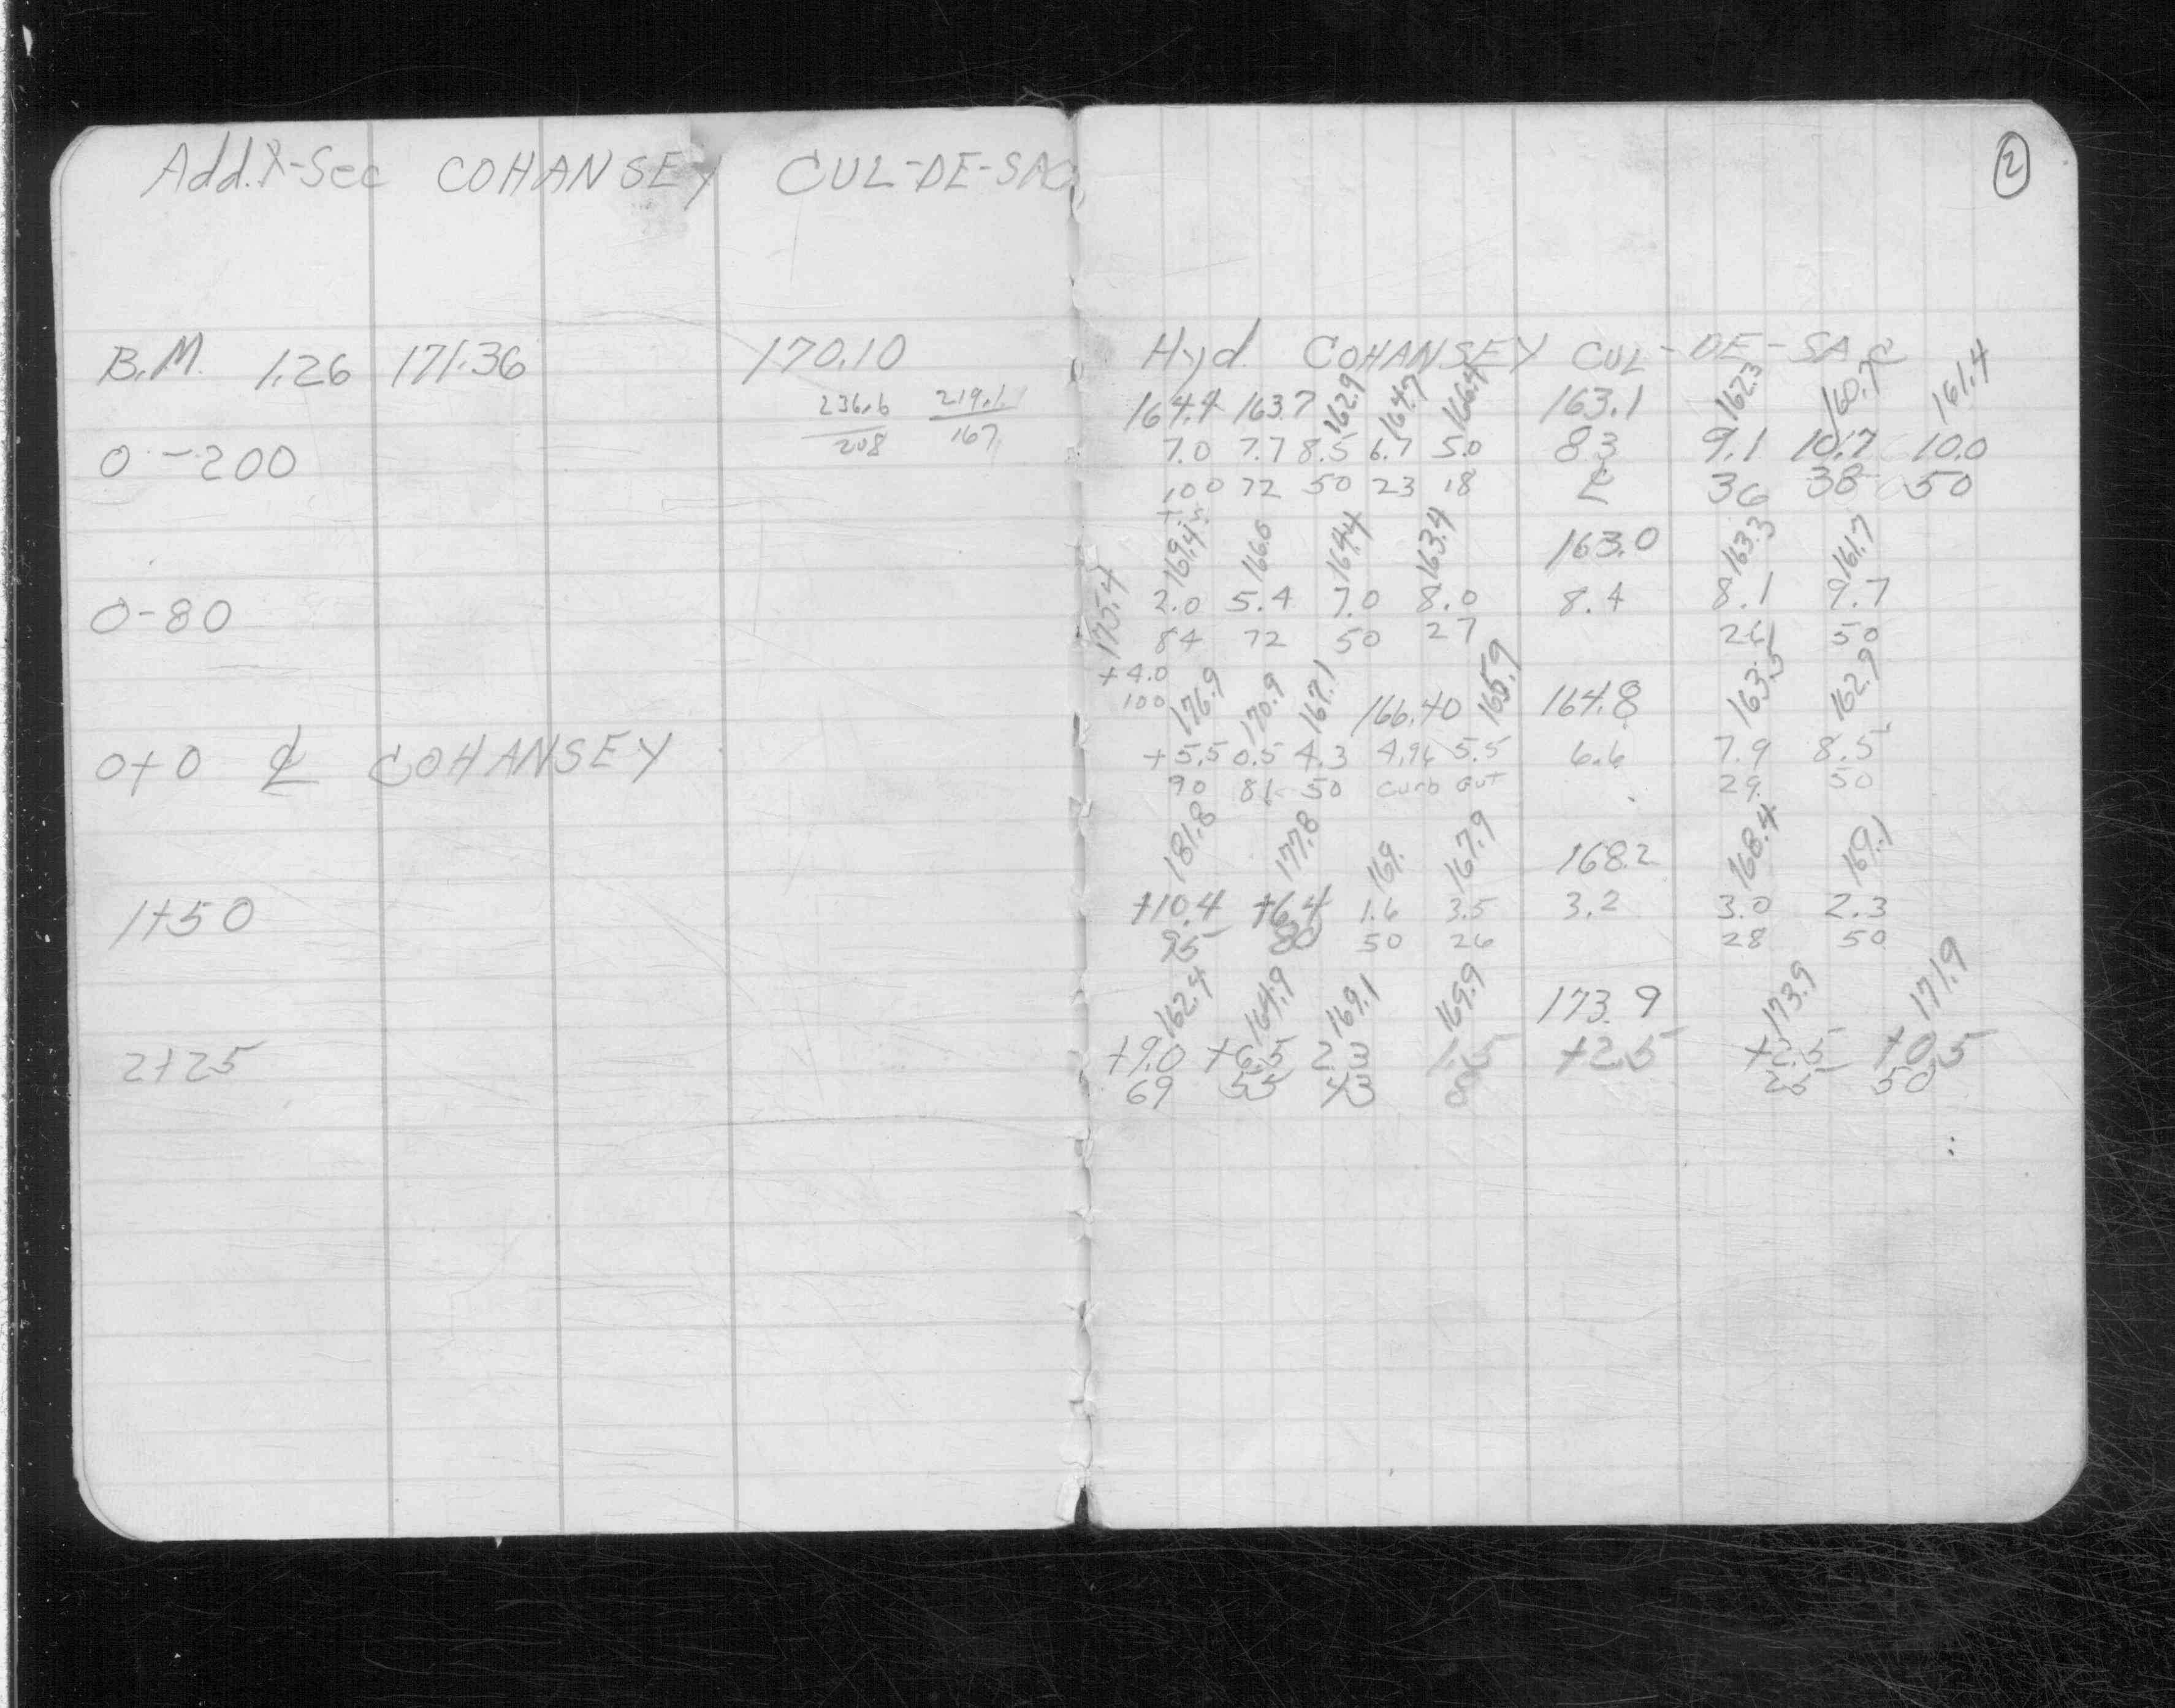 Add. X-Sec COHANSEY CUL-DE-SAC
2
B.M. 1.26 171.36 170.10 Hyd. COHANSEY CUL-DE-SAC
236.6 219.1
208 167
164.4 163.7 162.9 164.7 166.4 163.1 162.3 160.7 161.4
0-200 7.0 7.7 8.5 6.7 5.0 8.3 9.1 10.7 10.0
100 72 50 23 18 ℄ 36 38 50
169.4 166.0 164.4 163.4 163.0 163.3 161.7
0-80 2.0 5.4 7.0 8.0 8.4 8.1 9.7
84 72 50 27 26 50
175.4
+4.0
100
176.9 170.9 167.1 166.40 165.9 164.8 163.5 162.9
0+0 ℄ COHANSEY +5.5 0.5 4.3 4.96 5.5 6.6 7.9 8.5
90 81 50 curb gut 29 50
181.8 177.8 169. 167.9 168.2 168.4 169.1
1+50 +10.4 +6.4 1.6 3.5 3.2 3.0 2.3
95 80 50 26 28 50
162.4 164.9 169.1 169.9 173.9 173.9 171.9
2+25 +9.0 +6.5 2.3 1.5 +2.5 +2.5 +0.5
69 55 43 25 50